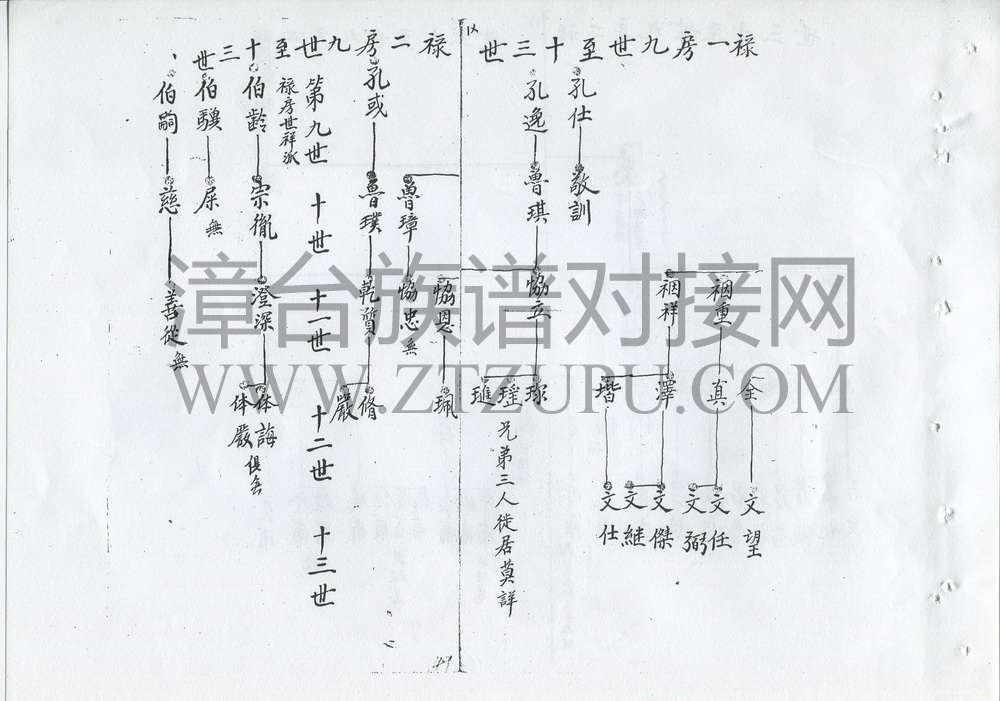 禄一房九世至十三世
金 文望
裀重 真 文任
文弼
裀祥 澤 文傑
文継
堦 文仕
孔仕 敬訓
孔逸 魯琪 協立 琭
瑶
琟
兄弟三人徙居莫詳
禄二房九世至十三世
協恩 珮
魯璋 協忠 無
孔或 魯璞 乾質 脩
嚴
第九世 十世 十一世 十二世 十三世
禄房世祥派
伯齡 宗胤 澄深 体誨
体嚴
俱無
伯驥 屎 無
伯嗣 慈 善從 無
49
漳台族谱对接网
WWW.ZTZUPU.COM